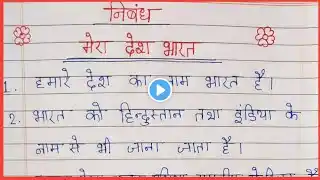 निबंध
मेरा देश भारत
1. हमारे देश का नाम भारत है।
2. भारत को हिन्दुस्तान तथा इंडिया के
नाम से भी जाना जाता है।